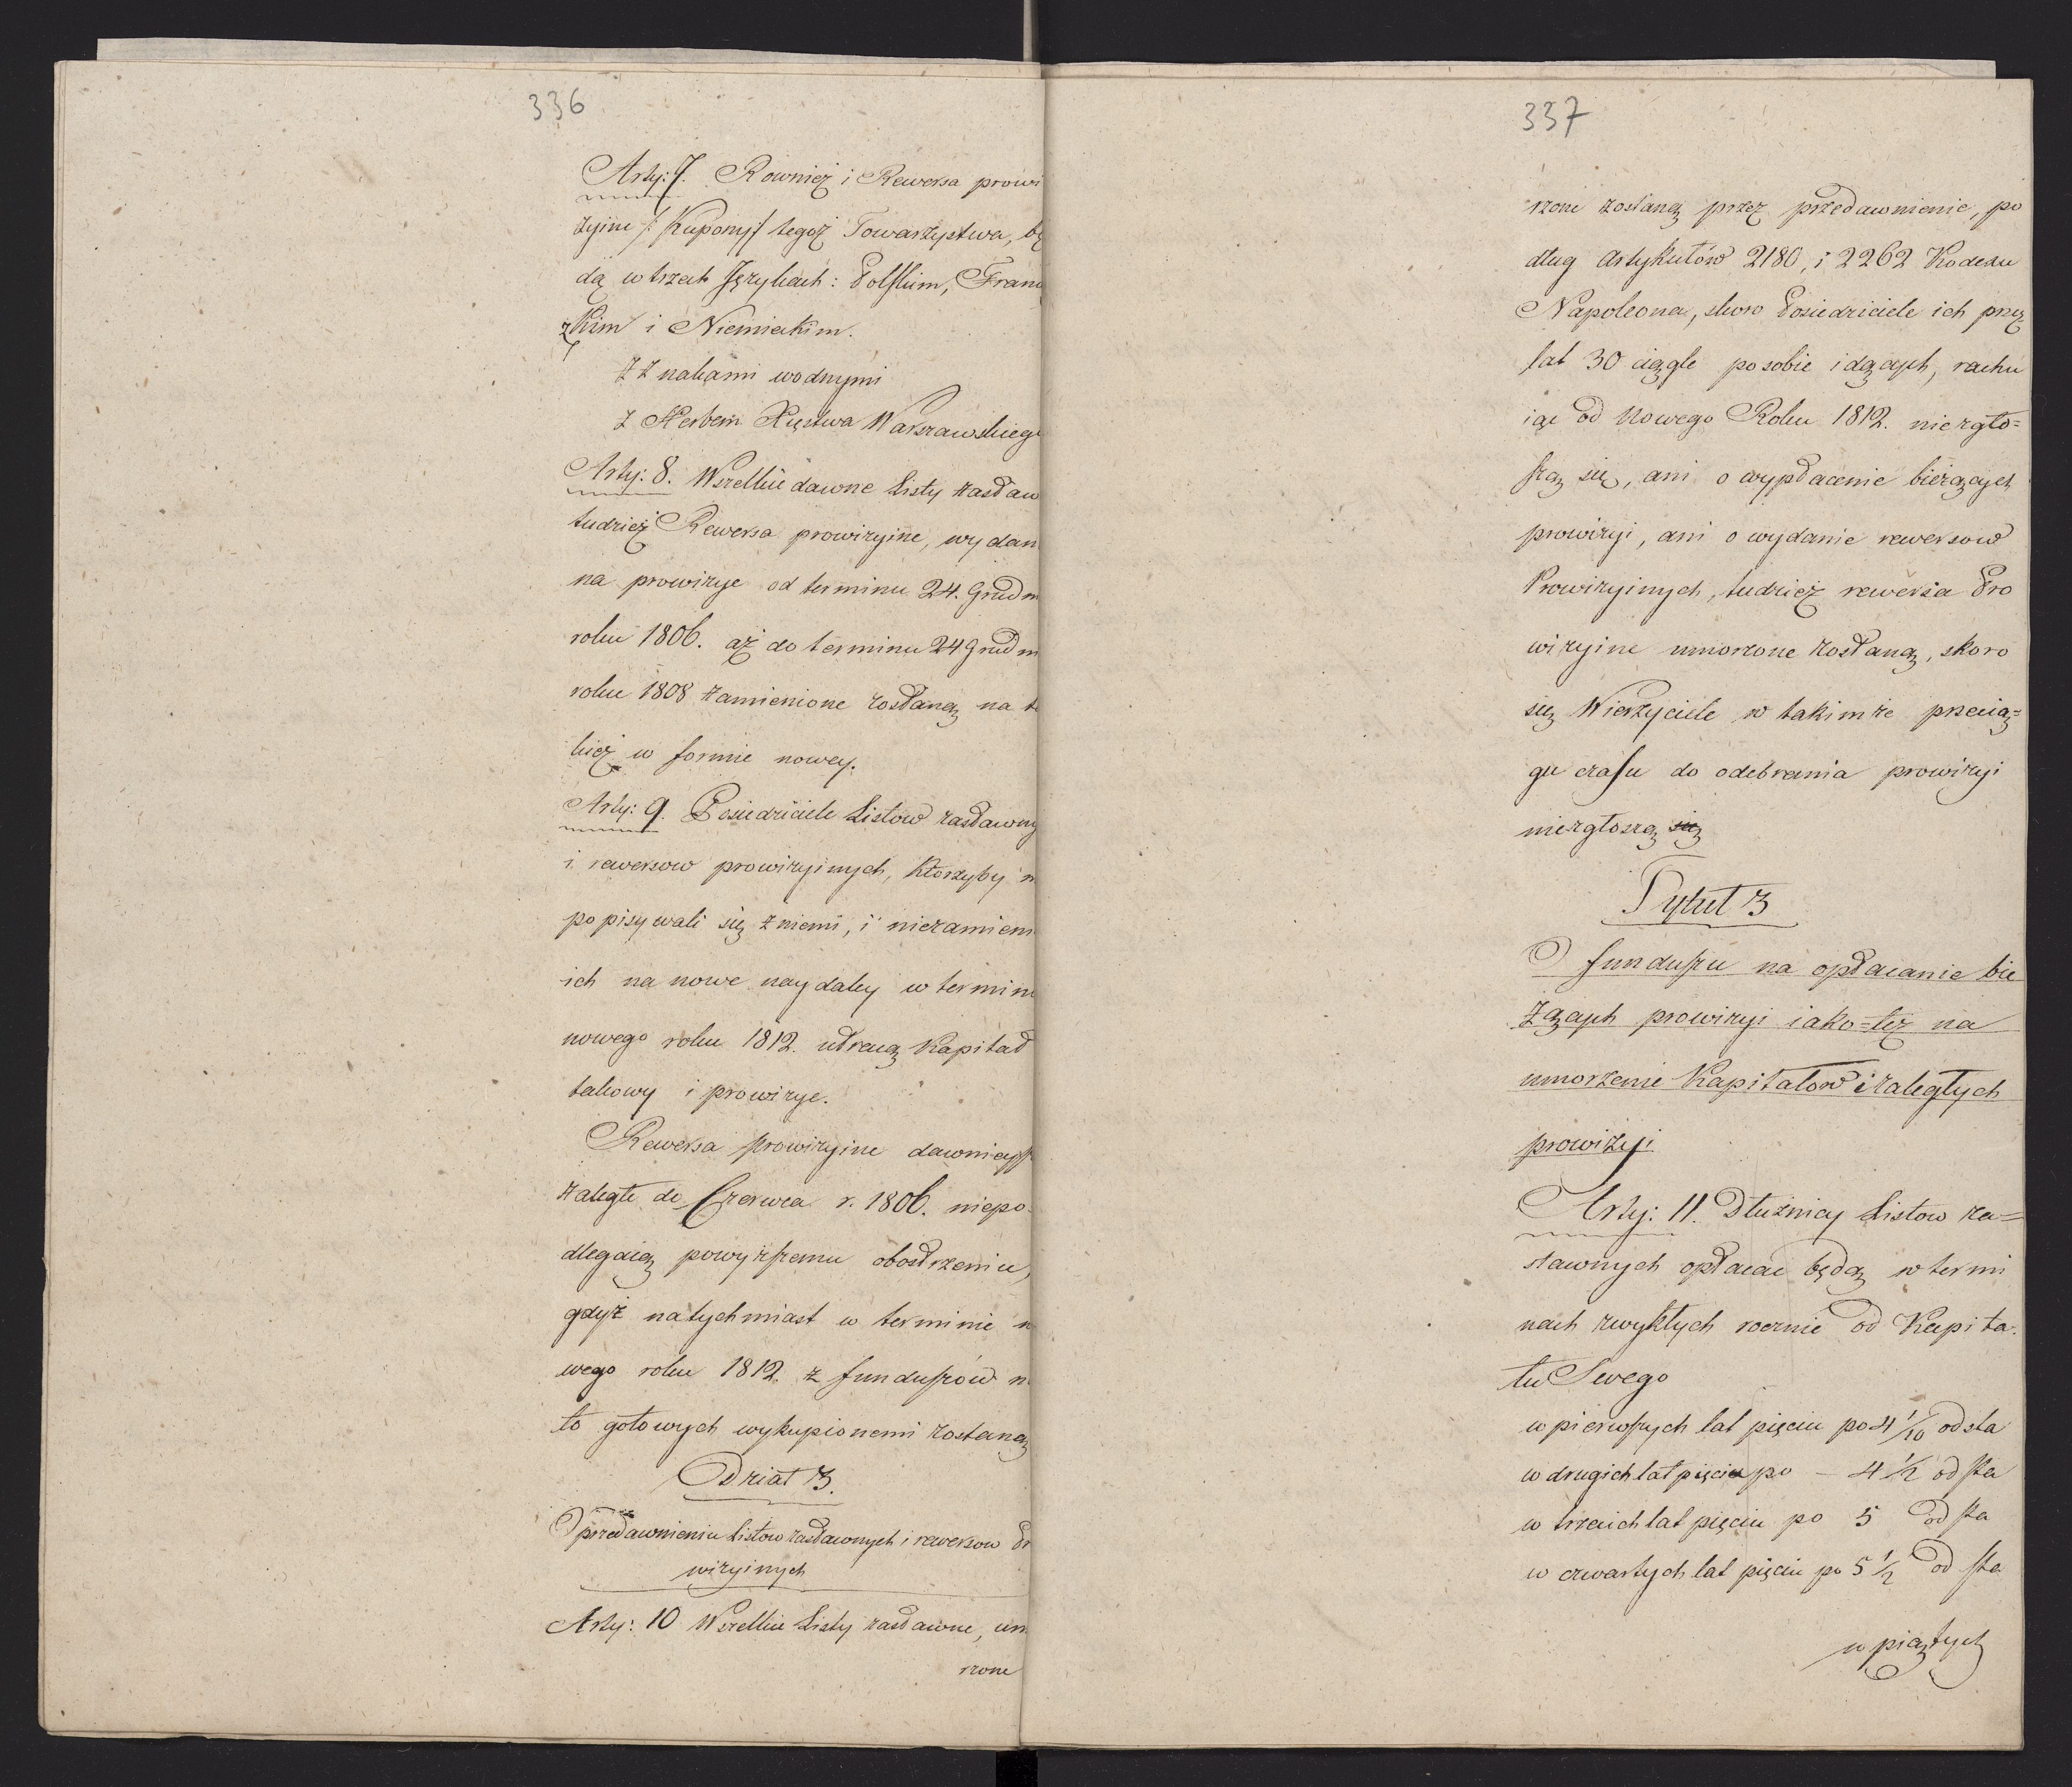 336
Arty: 7. Rowniez i Rewersa prowi
zyine /: Kupony :/ tegoż Towarzystwa, bę
dą w trzech Językach: Polskim, Franc
zkim i Niemieckim.
Z Znakami wodnymi
Z Herbem Xięstwa Warszawskiego
Arty: 8. Wszelkie dawne Listy zastaw
tudzież Rewersa prowizyine, wydan
na prowizye od terminu 24. Grudn
roku 1806. aż do terminu 24 Grudn
roku 1808 zamienione zostaną na ta
kież w formie nowey.
Arty: 9. Posiedziciele Listow zastawny
i rewersow prowizyinych, Ktorzyby n
popisywali się z niemi, i niezamieni
ich na nowe naydaley w termini
nowego roku 1812. utracą Kapitał
takowy i prowizye.
Rewersa prowizyine dawnieysz
zaległe do Czerwca r. 1806. niepo
dlegaią powyższemu obostrzeniu,
gdyż natychmiast w terminie no
wego roku 1812. z funduszów n
to gotowych wykupionemi zostaną
Dział 3.
O przedawnieniu Listow zastawnych i rewersow Pr
wizyinych
Arty: 10 Wszelkie Listy zastawne, um
rzone
337
rzone zostaną przez przedawnienie, po
dług Artykułów 2180, i 2262 Kodexu
Napoleona, skoro Posiedziciele ich przez
lat 30 ciągle po sobie idących, rachu
iąc od Nowego Roku 1812. niezgło=
szą się, ani o wypłacenie bieżących
prowizyi, ani o wydanie rewersow
Prowizyinych, tudzież rewersa Pro
wizyine umorzone zostaną, skoro
się Wierzyciele w takimże przecią=
gu czasu do odebrania prowizyi
niezgłoszą się
Tytuł 3
O funduszu na opłacanie bie
żących prowizyi iako=też na
umorzenie Kapitałow i zaległych
prowizyi
Arty: 11. Dłużnicy Listow za=
stawnych opłacać będą w termi
nach zwykłych rocznie od Kapita
łu Swego
w pierwszych lat pięciu po 4 1/10 od sta
w drugich lat pięciu po — 4 1/2 od sta
w trzecich lat pięciu po 5 od sta
w czwartych lat pięciu po 5 1/2 od sta
w piątych